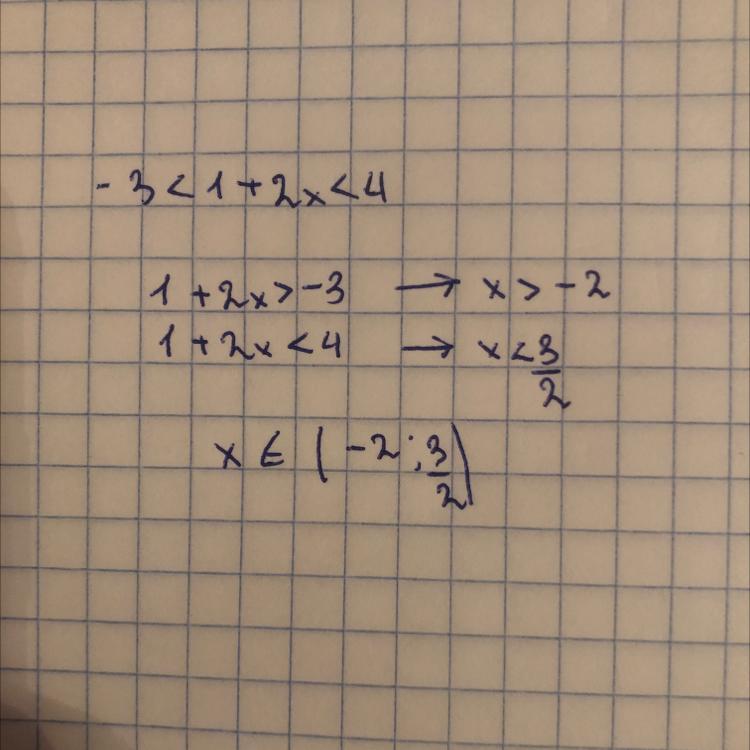 -3 < 1 + 2x < 4
1 + 2x > -3 → x > -2
1 + 2x < 4 → x < 3/2
x ∈ (-2 ; 3/2)